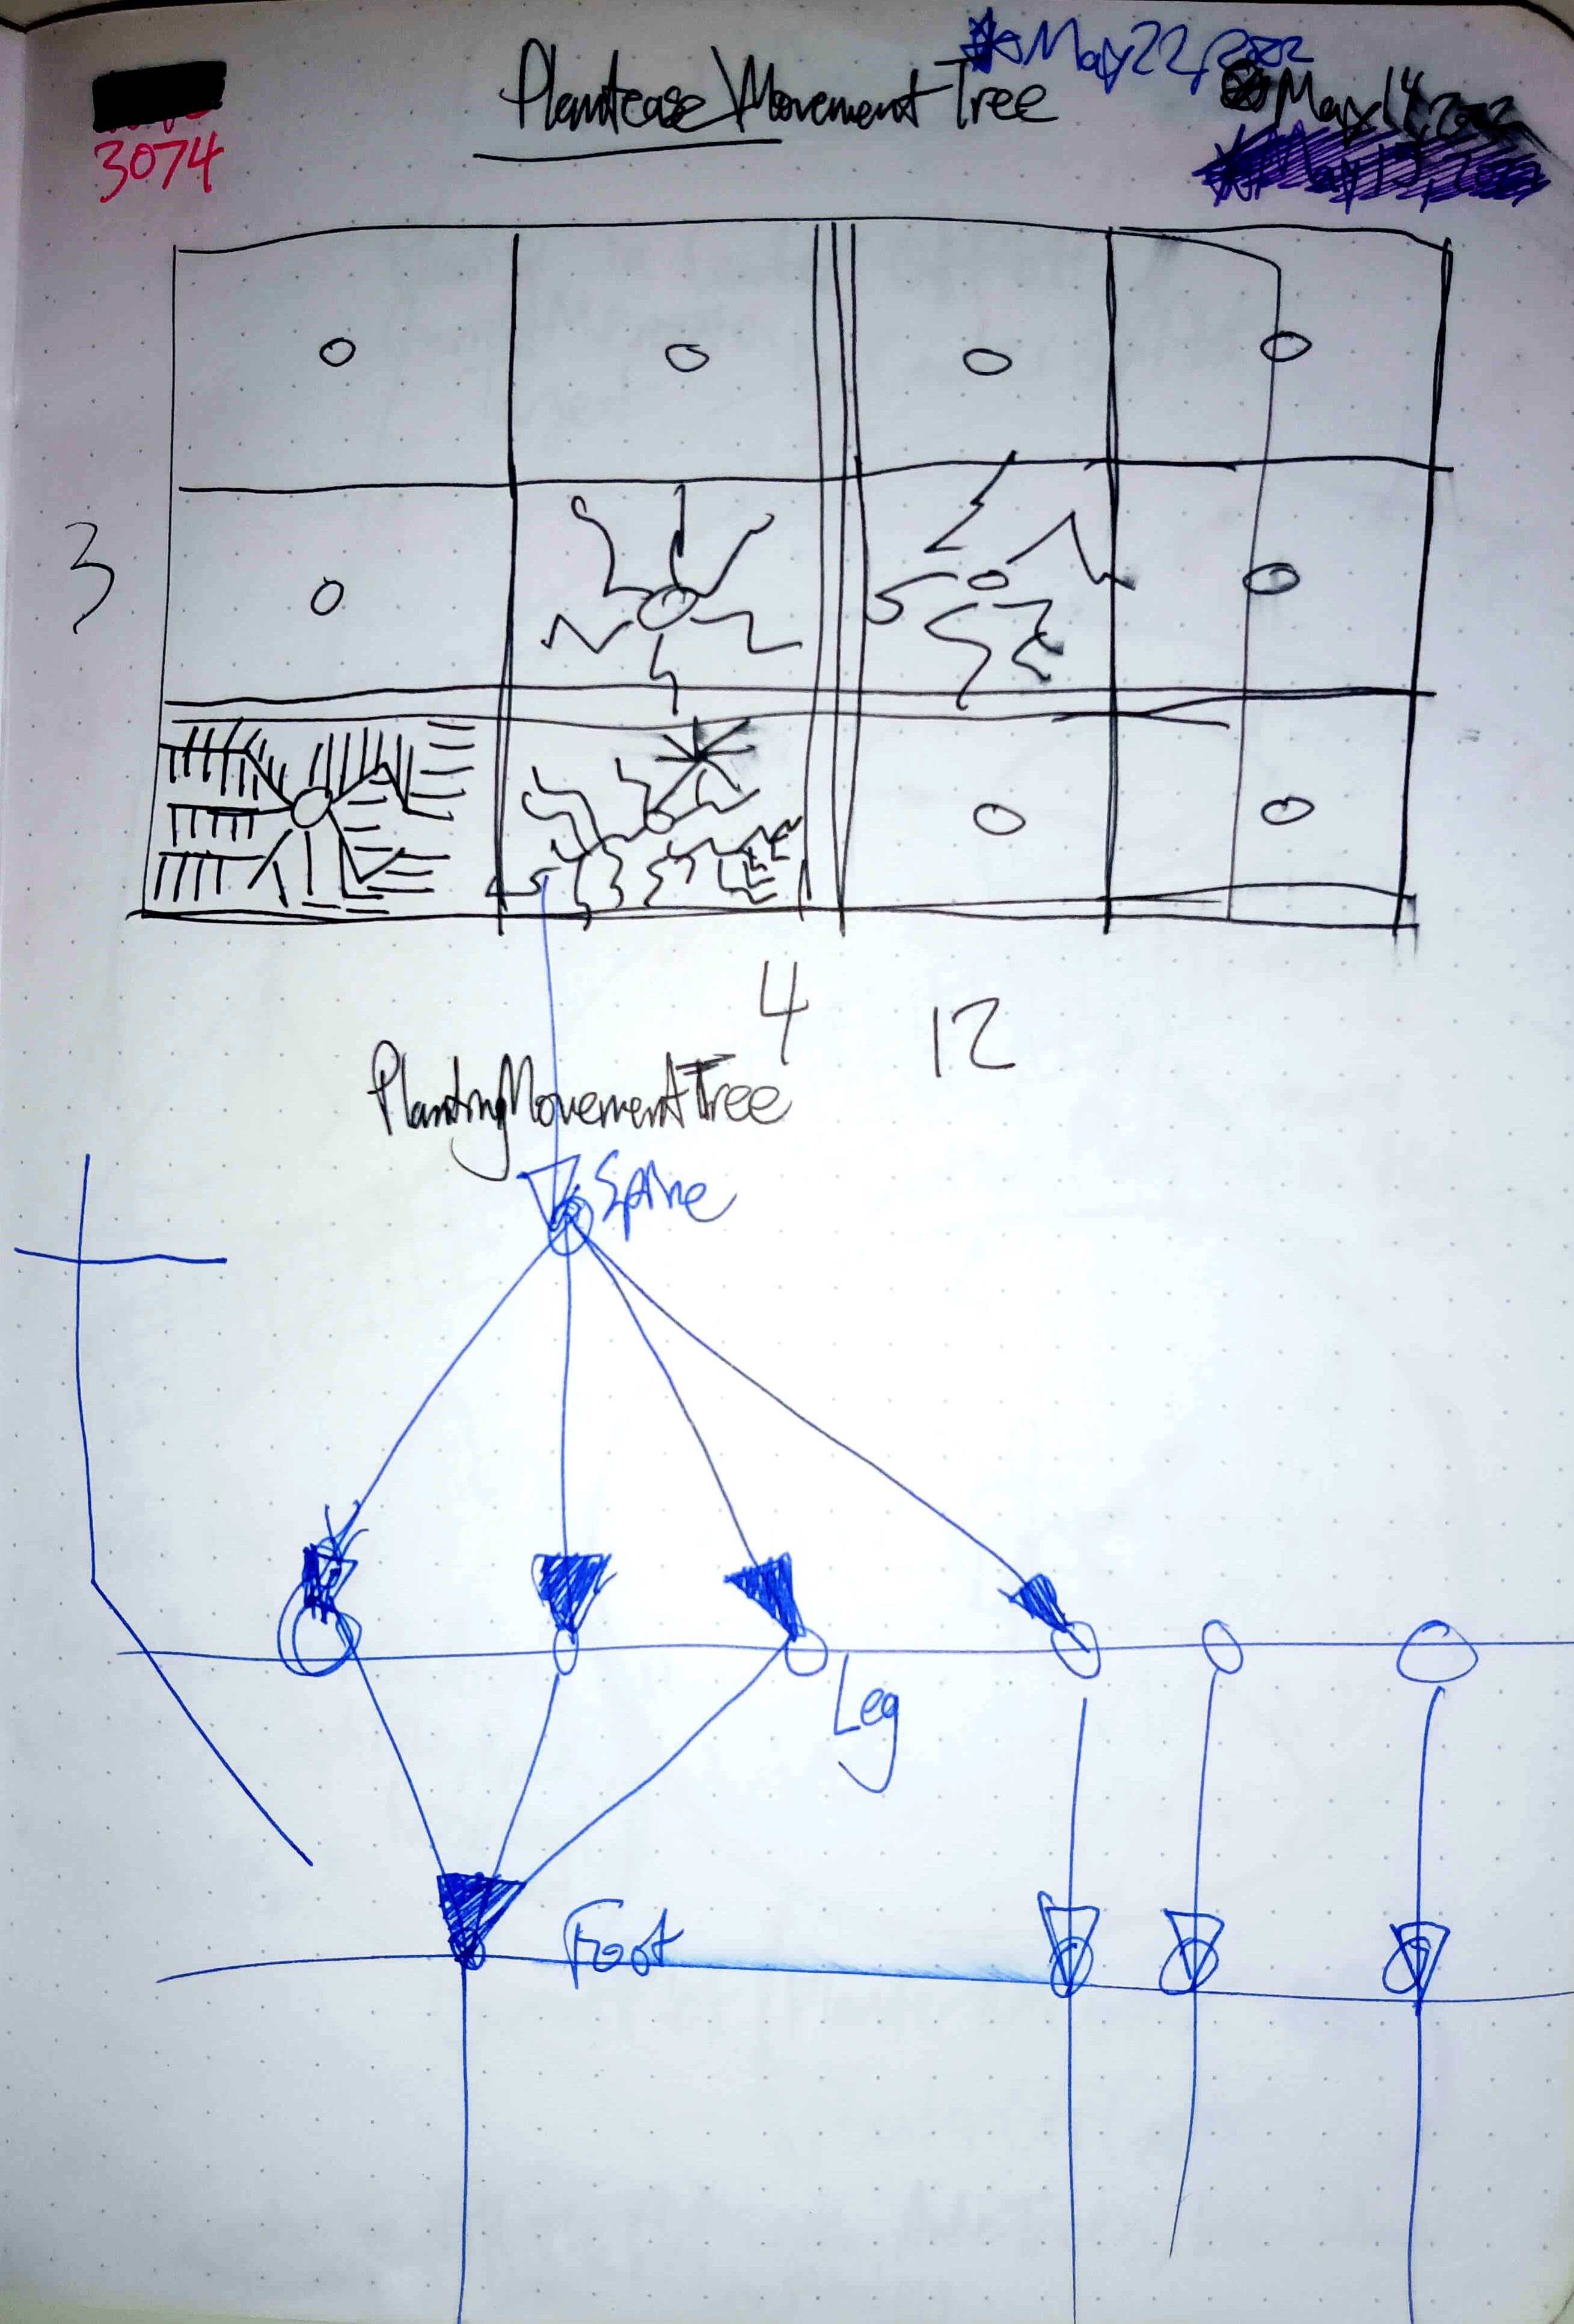 3074
Plantcase\MovementTree
May 22, 2022
May 14, 2022
3
4
12
PlantingMovementTree
Spine
Leg
Foot